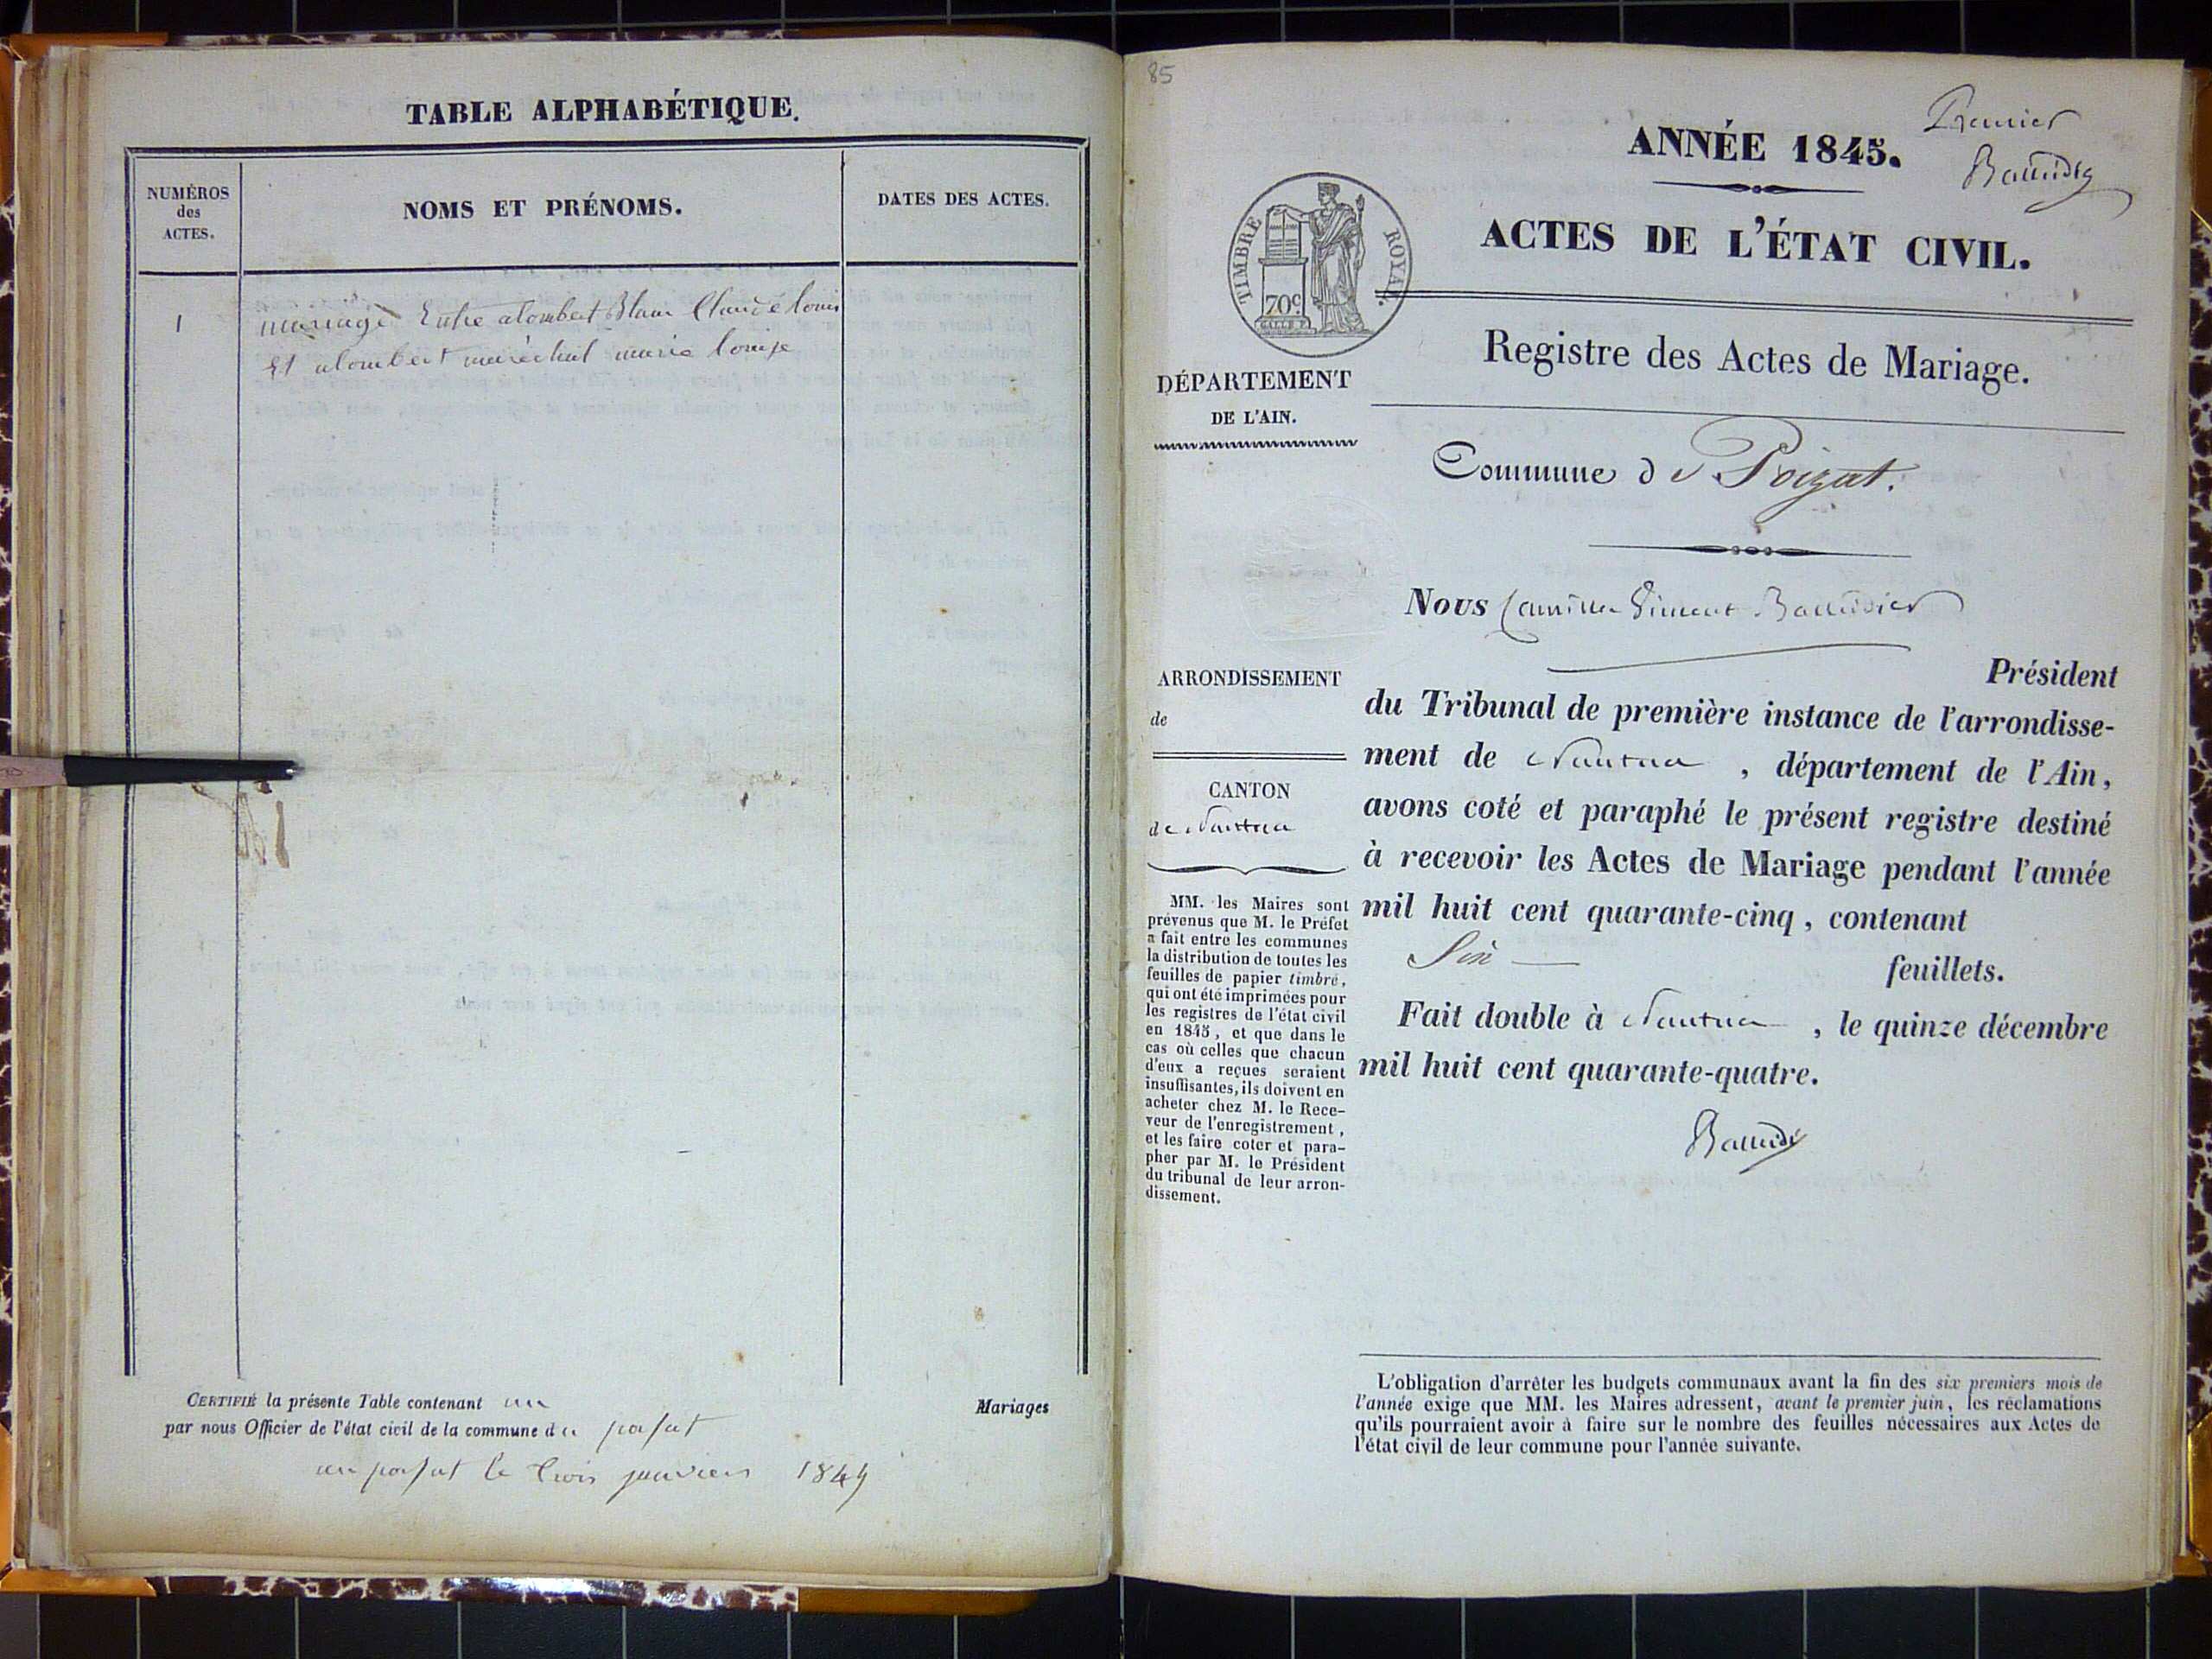 TABLE ALPHABÉTIQUE.
NUMÉROS
des
ACTES.
NOMS ET PRÉNOMS.
DATES DES ACTES.
1
mariage Entre alombert Blanc Claude louis
Et alombert maréchal marie louise
CERTIFIÉ la présente Table contenant un Mariages
par nous Officier de l'état civil de la commune du
le trois janvier
85
Premier
ANNÉE 1845.
ACTES DE L'ÉTAT CIVIL.
TIMBRE ROYAL.
70c.
Registre des Actes de Mariage.
DÉPARTEMENT
DE L'AIN.
Commune de Poizat.
Nous Camille Vincent
Président
du Tribunal de première instance de l'arrondisse-
ment de Nantua, département de l'Ain,
avons coté et paraphé le présent registre destiné
à recevoir les Actes de Mariage pendant l'année
mil huit cent quarante-cinq, contenant
Six feuillets.
Fait double à Nantua, le quinze décembre
mil huit cent quarante-quatre.
ARRONDISSEMENT
de
CANTON
de Nantua
MM. les Maires sont
prévenus que M. le Préfet
a fait entre les communes
la distribution de toutes les
feuilles de papier timbré,
qui ont été imprimées pour
les registres de l'état civil
en 1845, et que dans le
cas où celles que chacun
d'eux a reçues seraient
insuffisantes, ils doivent en
acheter chez M. le Rece-
veur de l'enregistrement,
et les faire coter et para-
pher par M. le Président
du tribunal de leur arron-
dissement.
L'obligation d'arrêter les budgets communaux avant la fin des six premiers mois de
l'année exige que MM. les Maires adressent, avant le premier juin, les réclamations
qu'ils pourraient avoir à faire sur le nombre des feuilles nécessaires aux Actes de
l'état civil de leur commune pour l'année suivante.